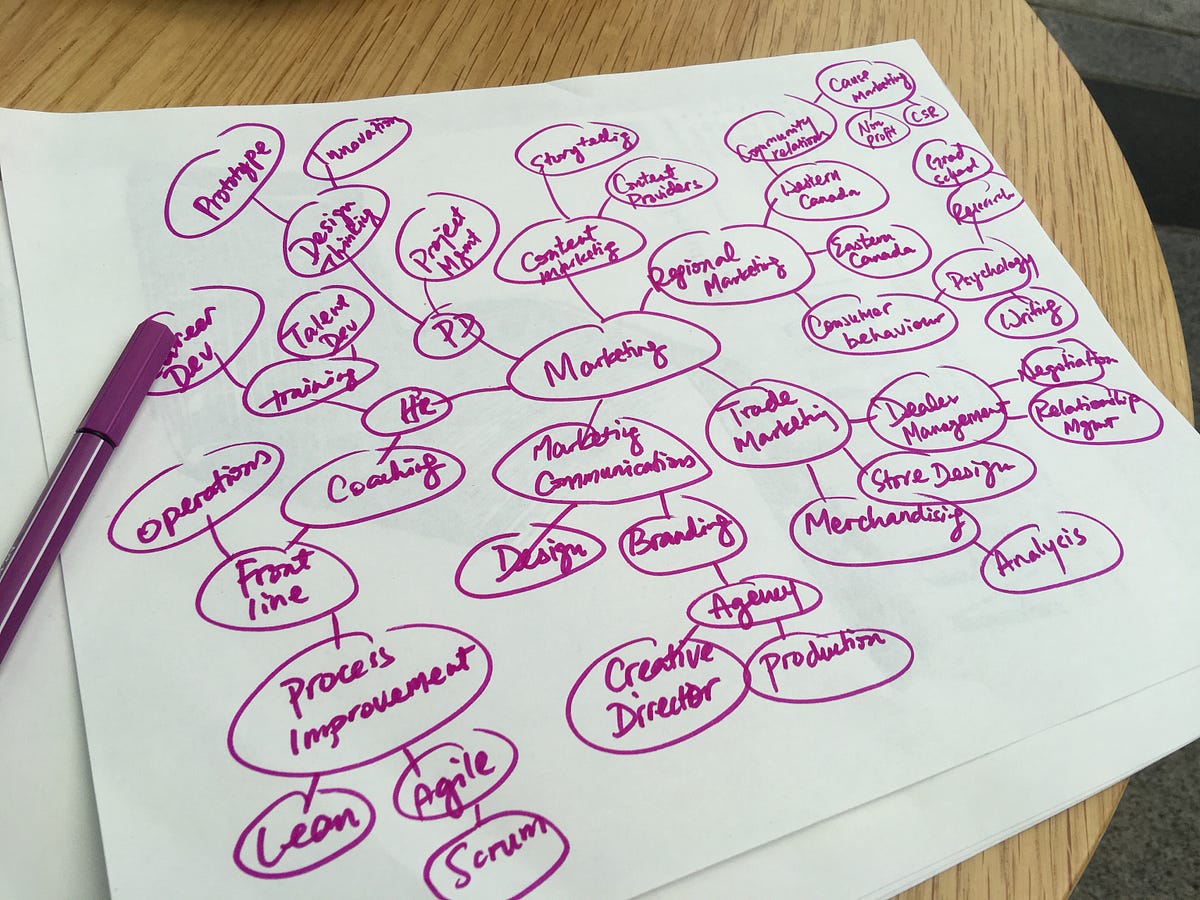 Cause
Marketing
Non
Profit
CSR
Community
relations
Grad
School
Research
Prototype
Innovation
Storytelling
Content
Providers
Western
Canada
Design
Thinking
Project
Mgmt
Content
marketing
Regional
Marketing
Eastern
Canada
Psychology
Writing
Consumer
behaviour
Talent
Dev
PI
Marketing
Career
Dev
training
HR
Trade
Marketing
Dealer
Management
Negotiation
Relationship
Mgmt
Marketing
Communications
Store Design
Operations
Coaching
Merchandising
Analysis
Design
Branding
Front
line
Agency
Creative
Dirrector
Production
Process
Improvement
Agile
Lean
Scrum